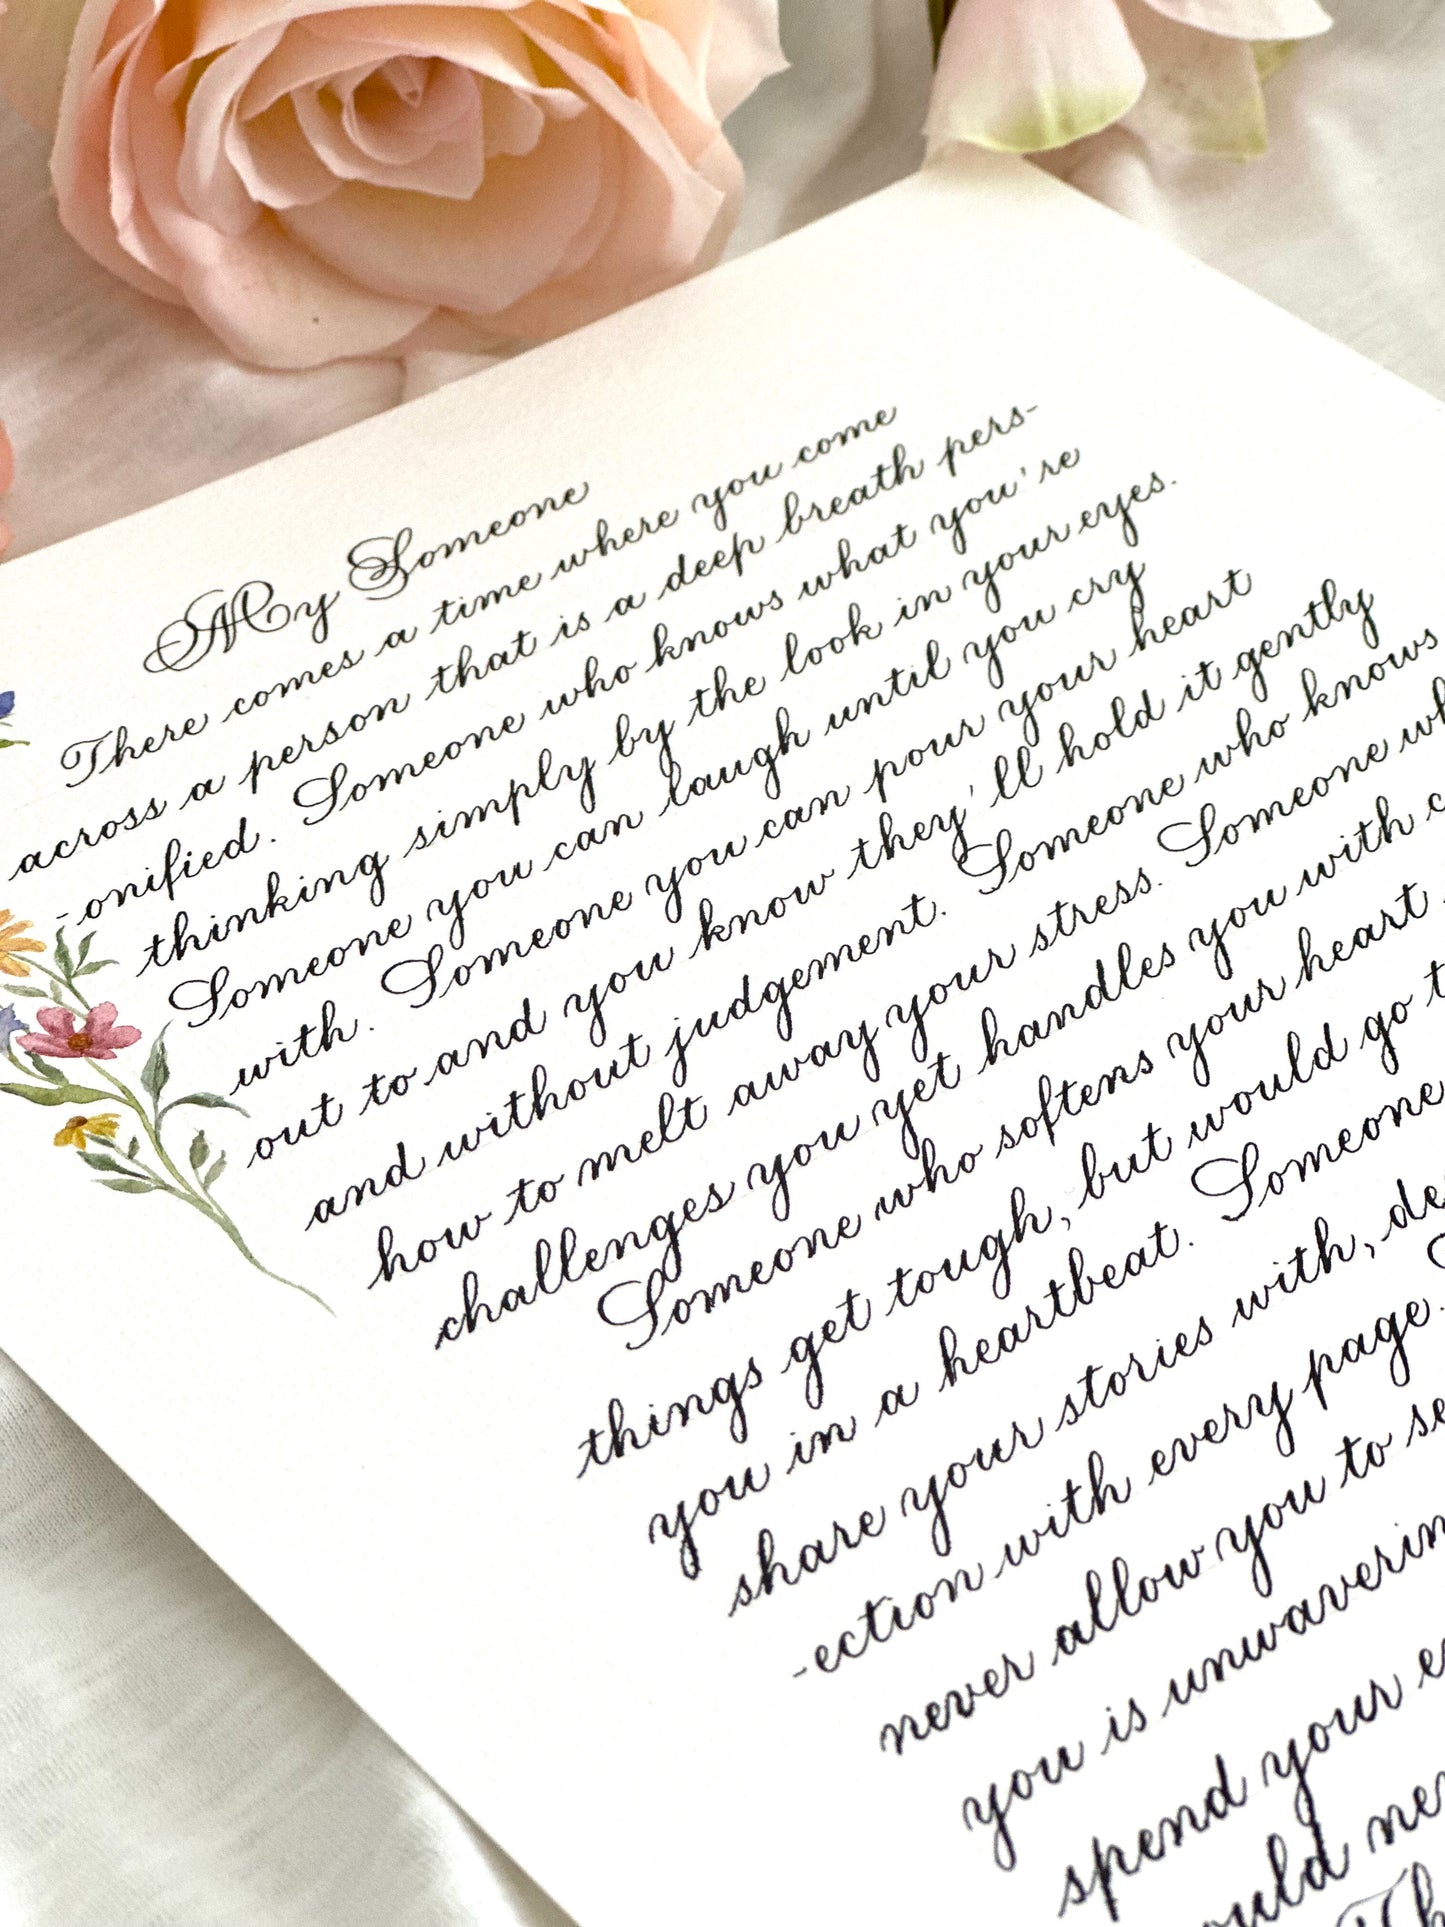 My Someone
There comes a time where you come
across a person that is a deep breath pers-
-onified. Someone who knows what you're
thinking simply by the look in your eyes.
Someone you can laugh until you cry
with. Someone you can pour your heart
out to and you know they'll hold it gently
and without judgement. Someone who knows
how to melt away your stress. Someone
challenges you yet handles you with
Someone who softens your heart
things get tough, but would go
you in a heartbeat. Someone
share your stories with,
-ection with every page.
never allow you to
you is
spend your